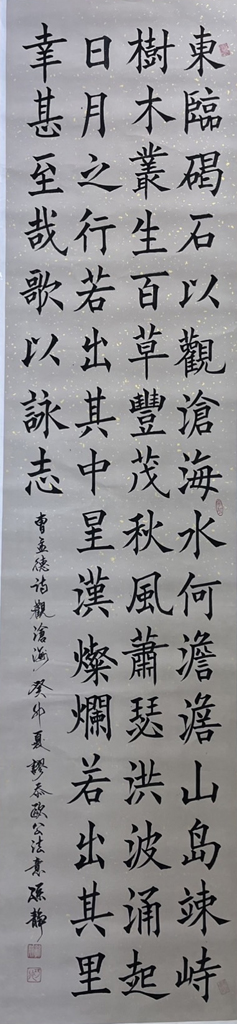 東臨碣石以觀滄海水何澹澹山島竦峙
樹木叢生百草豐茂秋風蕭瑟洪波涌起
日月之行若出其中星漢燦爛若出其里
幸甚至哉歌以詠志
曹孟德诗觀滄海 癸卯夏 歐公法意 靜